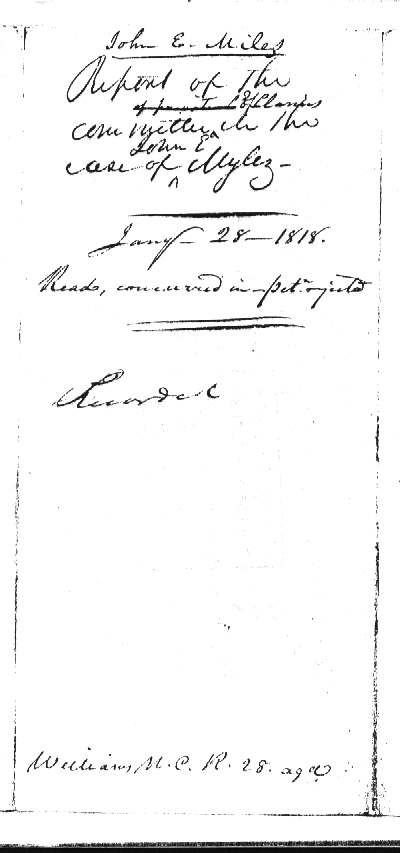 John E. Miles
Report of the
of private of Claims
committee in the
John E
case of Mylez
Jany 28 - 1818.
Read, concurred in - pet. rejected
Recorded
Williams, N. C. R. 28.